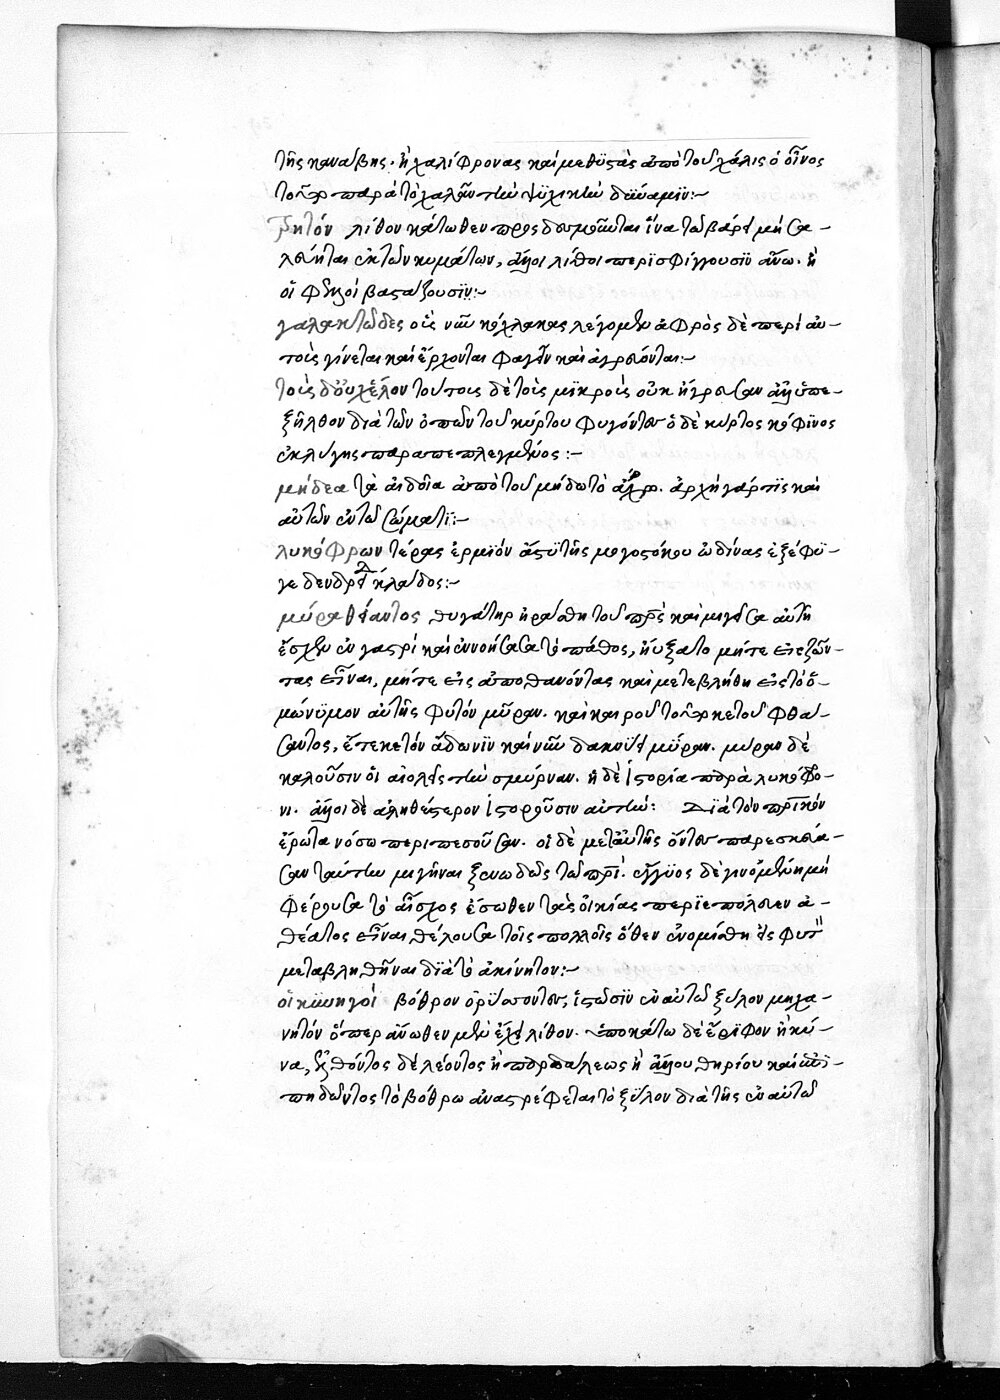 τῆς καναβης. ἢ χαλίφρονας καὶ μεθύσας ἀπὸ τοῦ χάλις ὁ οἶνος
παρὰ τὸ χαλᾶν τὴν ψυχικὴν δύναμιν:~
ῥητόν λίθον κάτωθεν προσδεσμοῦνται ἵνα τῶ βάρει μὴ σα-
λεύηται ἐκ τῶν κυμάτων, ἄλλοι λίθοι περισφίγγουσιν ἄνω. ἢ
οἱ φελλοὶ βαστάζουσιν:~
γαλακτώδες οὓς νῦν κόχλακας λέγομεν ἀφρὸς δὲ περὶ αὐ-
τοὺς γίνεται καὶ ἔρχονται φαγεῖν καὶ ἀγρεύονται:~
τοὺς τούτους δὲ τοὺς μικροὺς οὐκ ἤγρευσαν ἀλλ' ὑπε-
ξῆλθον διὰ τῶν ὀπῶν τοῦ κύρτου φυγόντες ὁ δὲ κύρτος κόφινος
ἐκ λύγης παραπεπλεγμένος :~
μήδεα τὰ αἰδοῖα ἀπὸ τοῦ μήδω τὸ ἀρχὴ γάρ τις καὶ
αὐτῶν ἐν τῶ σώματι:~
λυκόφρων τέρας μογοστόκου ὠδίνας ἐξέφυ-
γε κλάδος:~
μύρα θείαντος θυγάτηρ ἠράσθη τοῦ πρς καὶ μιγεῖσα αὐτῆ
ἔσχεν ἐν γαστρὶ καὶ ἐννοήσασα τὸ πάθος, ηὔξατο μήτε εἰς ζῶν-
τας εἶναι, μήτε εἰς ἀποθανόντας καὶ μετεβλήθη εἰς τὸ ὁ-
μώνυμον αὐτῆς φυτόν μύραν. καὶ καιροῦ τοῦ τοκετοῦ φθά-
σαντος, ἔτεκε τὸν ἄδωνιν καὶ νῦν δακρύει μύραν. μύραν δὲ
καλοῦσιν οἱ αἰολεῖς τὴν σμύρναν. ἡ δὲ ἱστορία παρὰ λυκόφρο-
νι. ἄλλοι δὲ ἀληθέστερον ἱστοροῦσιν αὐτήν: Διὰ τὸν πρικόν
ἔρωτα νόσω περιπεσοῦσαν. οἱ δὲ μετ' αὐτῆς ὄντες παρεσκεύα-
σαν ταύτην μιγῆναι τῶ πρι. ἔγγυος δὲ γινομένη μὴ
φέρουσα τὸ αἶσχος ἔσωθεν τὰς οἰκίας περιεπόλευεν ἀ-
θέατος εἶναι θέλουσα τοῖς πολλοῖς ὅθεν ἐνομίσθη εἰς φυτ
μεταβληθῆναι διὰ τὸ ἀκίνητον:~
οἱ κυνηγοὶ βόθρον ὀρύσσοντες, ἱστῶσιν ἐν αὐτῶ ξύλον μηχα-
νητόν ὅπερ ἄνωθεν μὲν ἔχει λίθον. ὑποκάτω δὲ ἔριφον ἢ κύ-
να, ἐλθόντος δὲ λέοντος ἢ παρδάλεως ἢ ἄλλου θηρίου καὶ ἐπι-
πηδῶντος τὸ βόθρω ἀναστρέφεται τὸ ξύλον διὰ τῆς ἐν αὐτῶ